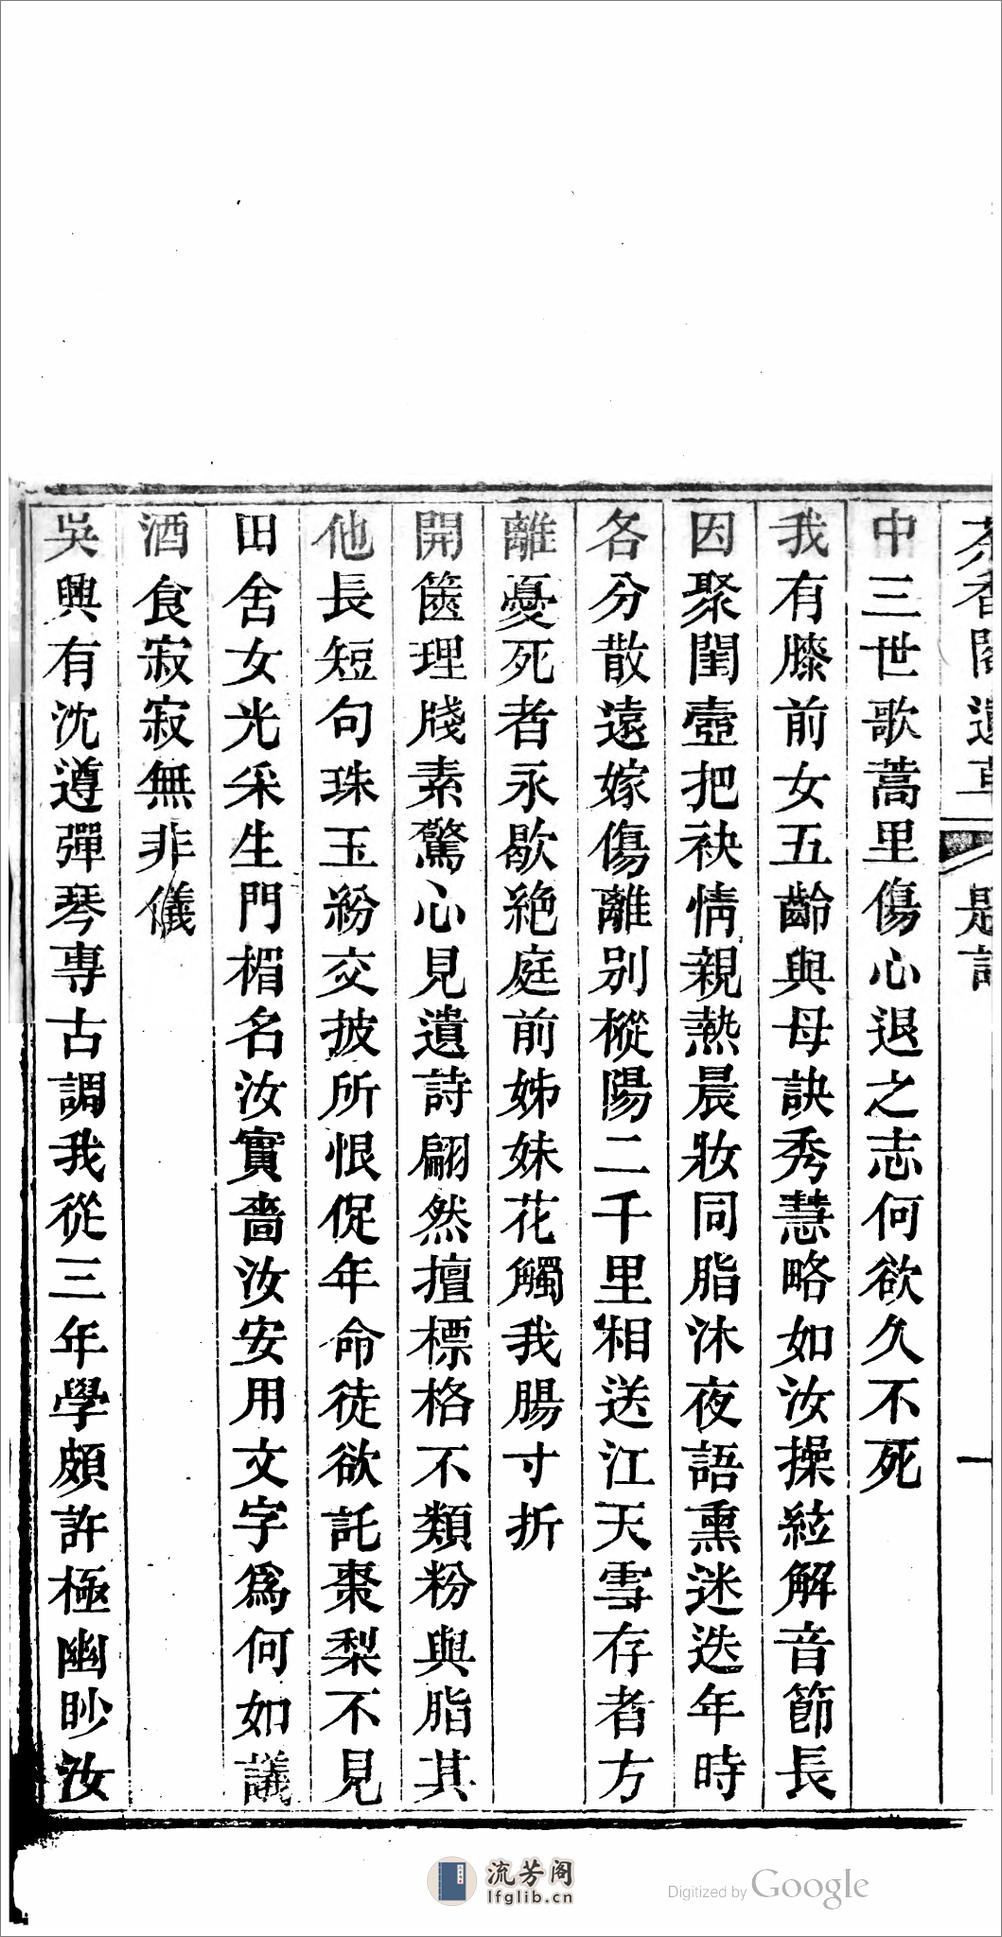 茶香閣遺草 題詞 一
中三世歌蒿里傷心退之志何欲久不死
我有膝前女五齡與母訣秀慧略如汝操絃解音節長
因聚閨壼把袂情親熱晨妝同脂沐夜語熏迷迭年時
各分散遠嫁傷離別樅陽二千里相送江天雪存者方
離憂死者永歇絕庭前姊妹花觸我腸寸折
開篋理牋素驚心見遺詩翩然擅標格不類粉與脂其
他長短句珠玉紛交披所恨促年命徒欲託棗梨不見
田舍女光采生門楣名汝實嗇汝安用文字爲何如議
酒食寂寂無非儀
吳興有沈遵彈琴專古調我從三年學頗許極幽眇汝
流芳阁
lfglib.cn
Digitized by Google